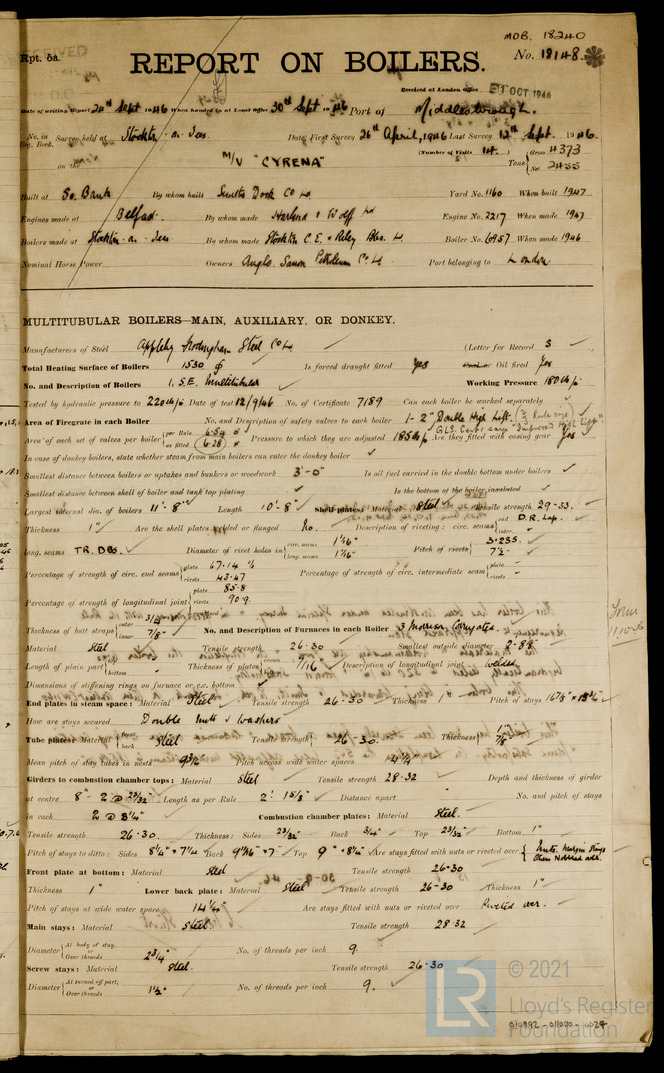 MDB. 18240
Rpt. 5a.
REPORT ON BOILERS.
No. 18148
Received at London Office 1 OCT 1946
Date of writing Report 24th Sept 1946 When handed in at Local Office 30th Sept 1946 Port of Middlesbrough.
No. in Reg. Book. Survey held at Stockton-on-Tees Date, First Survey 26th April, 1946 Last Survey 12th Sept. 1946.
(Number of Visits 14.)
on the M/V "CYRENA" Tons Gross 4373 Net 2455
Built at So. Bank By whom built Smiths Dock Co Ld Yard No. 1160 When built 1947
Engines made at Belfast By whom made Harland & Wolff Ld Engine No. 2217 When made 1947
Boilers made at Stockton-on-Tees By whom made Stockton C.E. & Riley Blrs. Ld Boiler No. 6957 When made 1946
Nominal Horse Power Owners Anglo Saxon Petroleum Co Ld Port belonging to London
MULTITUBULAR BOILERS—MAIN, AUXILIARY, OR DONKEY.
Manufacturers of Steel Appleby Frodingham Steel Co Ld (Letter for Record S
Total Heating Surface of Boilers 1530 Is forced draught fitted Yes Oil fired Yes
No. and Description of Boilers 1. S.E. Multitubular Working Pressure 180
Tested by hydraulic pressure to 220 Date of test 12/9/46 No. of Certificate 7189 Can each boiler be worked separately
Area of Firegrate in each Boiler No. and Description of safety valves to each boiler 1 - 2" Double High Lift.
Area of each set of valves per boiler per Rule 6.54 as fitted 6.28 Pressure to which they are adjusted 185 Are they fitted with easing gear Yes
In case of donkey boilers, state whether steam from main boilers can enter the donkey boiler
Smallest distance between boilers or uptakes and bunkers or woodwork 3'-0" Is oil fuel carried in the double bottom under boilers
Smallest distance between shell of boiler and tank top plating Is the bottom of the boiler insulated
Largest internal dia. of boilers 11'-8" Length 10'-8" Shell plates: Material Steel Tensile strength 29-33.
Thickness 1" Are the shell plates welded or flanged No. Description of riveting: circ. seams end D.R. Lap. inter.
long. seams T.R. DBS. Diameter of rivet holes in circ. seams 1 1/16" long. seams 1 1/16" Pitch of rivets 3.235. 7 1/2
Percentage of strength of circ. end seams plate 67.14 rivets 43.47 Percentage of strength of circ. intermediate seam plate rivets
Percentage of strength of longitudinal joint plate 85.8 rivets 90.9.
Thickness of butt straps outer 3/4 inner 7/8" No. and Description of Furnaces in each Boiler 3 Morison Corrugated.
Material Steel Tensile strength 26-30 Smallest outside diameter
Length of plain part top bottom Thickness of plates crown bottom 7/16" Description of longitudinal joint welded.
Dimensions of stiffening rings on furnace or c.c. bottom
End plates in steam space: Material Steel Tensile strength 26-30 Thickness 1" Pitch of stays
How are stays secured Double Nuts & Washers
Tube plates: Material front back Steel Tensile strength 26-30. Thickness 7/8"
Mean pitch of stay tubes in nests 9 3/4 Pitch across wide water spaces 14 1/4"
Girders to combustion chamber tops: Material Steel Tensile strength 28-32 Depth and thickness of girder
at centre 8" 2 @ 23/32" Length as per Rule 2'. 1 5/8" Distance apart No. and pitch of stays
in each 2 @ 8 1/4" Combustion chamber plates: Material Steel.
Tensile strength 26-30 Thickness: Sides 23/32" Back 3/4" Top 23/32" Bottom 1"
Pitch of stays to ditto: Sides 8 1/4" x 7 1/4" Back 9 9/16" x 7" Top 9" x 8 1/4" Are stays fitted with nuts or riveted over Nuts. Margin Stays
Front plate at bottom: Material Steel Tensile strength 26-30
Thickness 1" Lower back plate: Material Steel Tensile strength 26-30 Thickness 1"
Pitch of stays at wide water space 14 1/4" Are stays fitted with nuts or riveted over Riveted over.
Main stays: Material Steel Tensile strength 28-32
Diameter At body of stay, or Over threads 2 3/4" No. of threads per inch 9.
Screw stays: Material Steel. Tensile strength 26-30
Diameter At turned off part, or Over threads 1 1/2" No. of threads per inch 9.
LR © 2021
Lloyd's Register
Foundation
010992-011000-0029